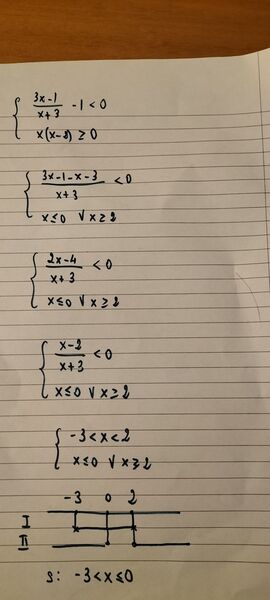 { (3x-1)/(x+3) -1 < 0
x(x-2) ≥ 0
{ (3x-1-x-3)/(x+3) < 0
x≤0 ∨ x≥2
{ (2x-4)/(x+3) < 0
x≤0 ∨ x≥2
{ (x-2)/(x+3) < 0
x≤0 ∨ x≥2
{ -3<x<2
x≤0 ∨ x≥2
-3 0 2
I
II
S: -3<x≤0